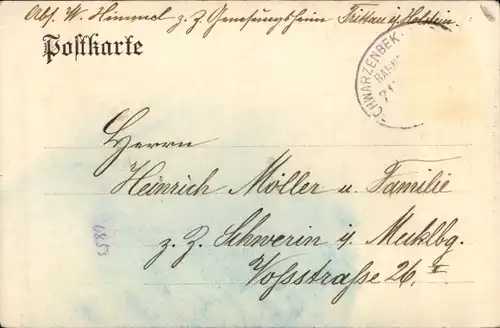 Abs. W. Himmel z. Z. Genesungsheim Trittau i/Holstein.
Postkarte
SCHWARZENBEK
BAHN
Herrn
Heinrich Möller u. Familie
z. Z. Schwerin i/ Meklbg.
Vossstraße 26. II
6853